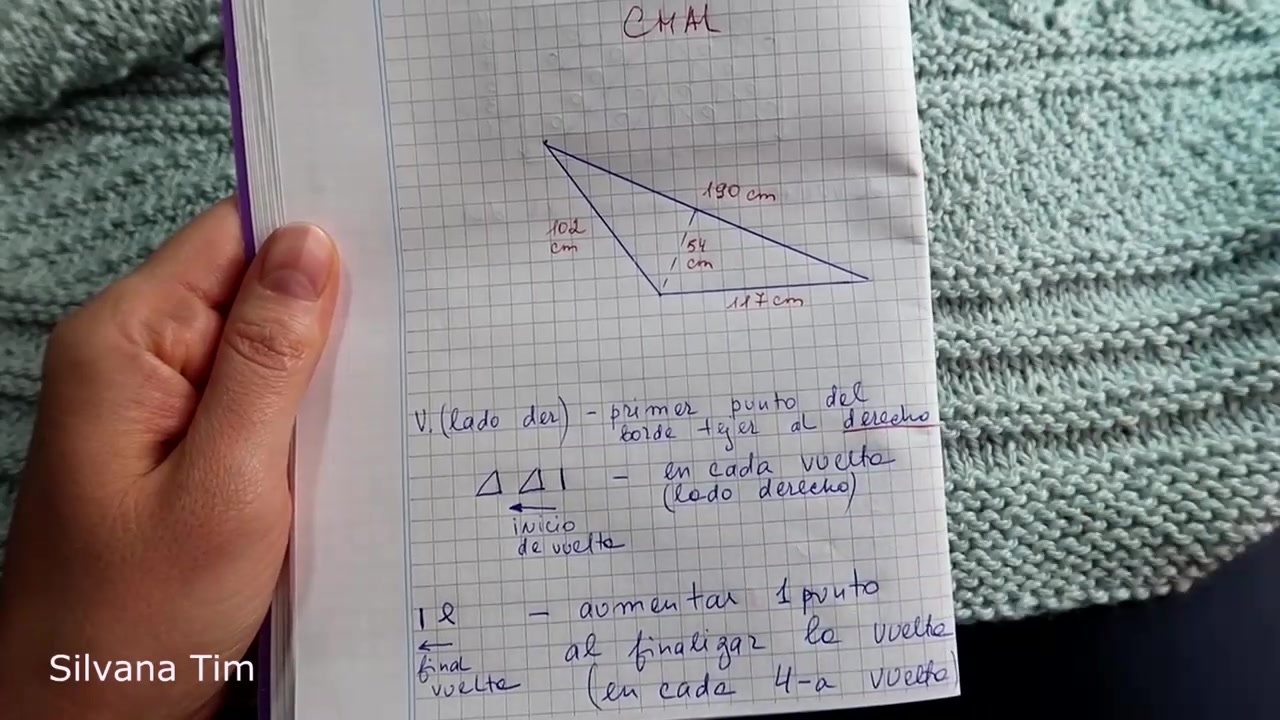 CHAL
190 cm
102
cm
54
cm
117 cm
V. (lado der) - primer punto del
borde tejer al derecho
△ △ | - en cada vuelta
(lado derecho)
←
inicio
de vuelta
| ℓ - aumentar 1 punto
al finalizar la vuelta
(en cada 4-a vuelta)
←
final
vuelta
Silvana Tim